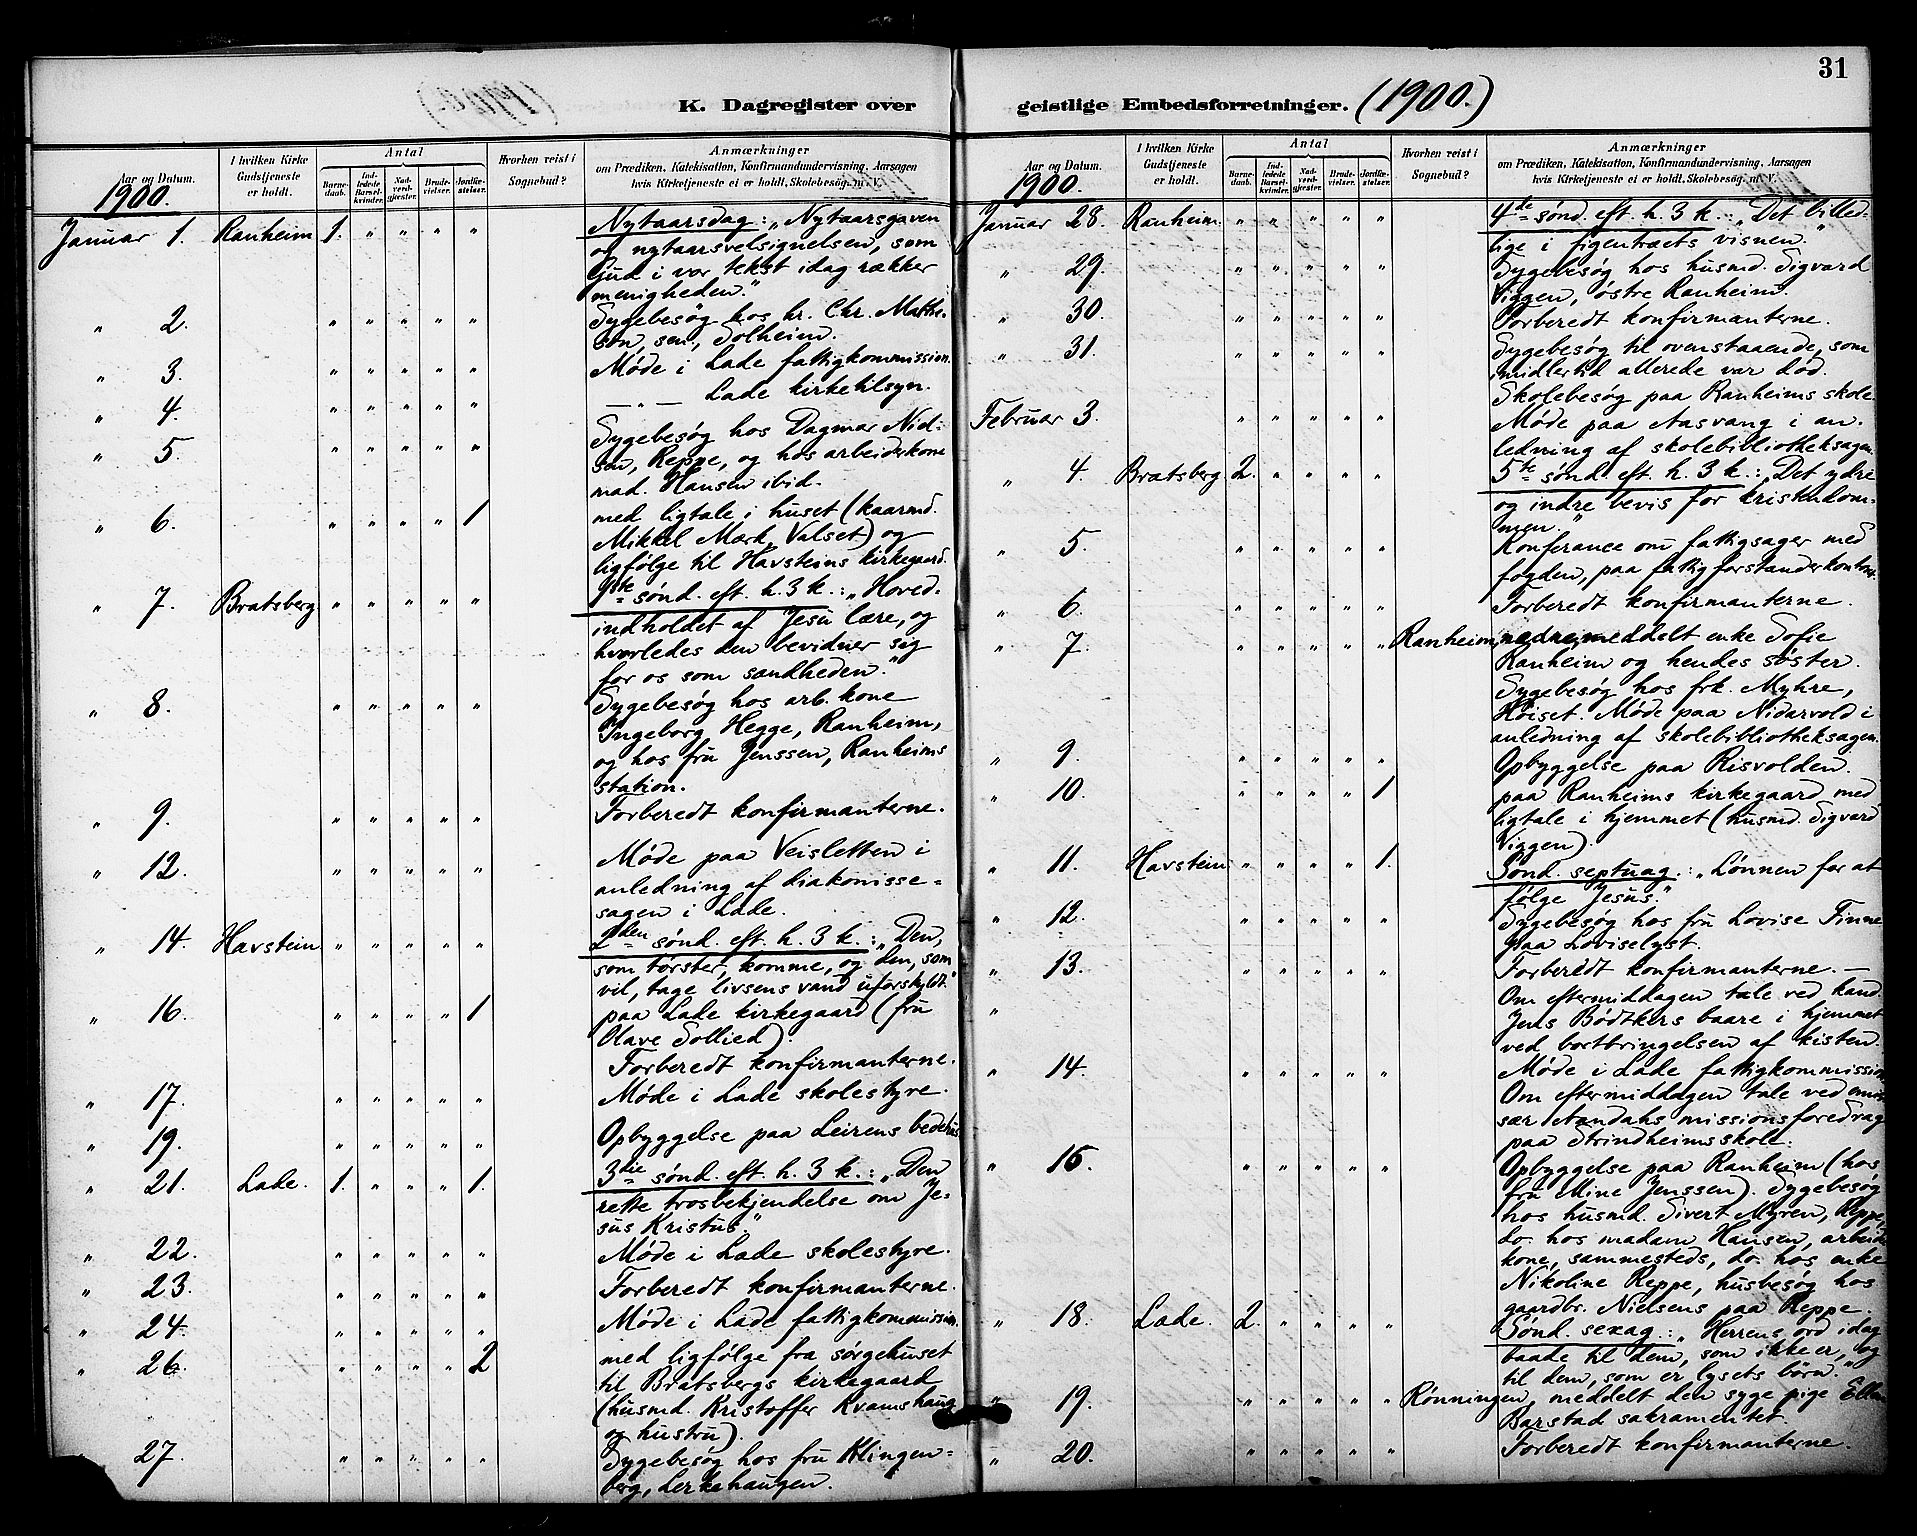 31
K. Dagregister over geistlige Embedsforretninger. (1900.)
Aar og Datum.
1900.
I hvilken Kirke Gudstjeneste er holdt.
Antal
Barnedaab.
Indledede Barselkvinder.
Nadverdgjester.
Brudevielser.
Jordfæstelser.
Hvorhen reist i Sognebud?
Anmærkninger
om Prædiken, Katekisation, Konfirmandundervisning, Aarsagen
hvis Kirketjeneste ei er holdt, Skolebesøg m. V.
Januar 1. Ranheim 1. " " " " Nytaarsdag: „Nytaarsgaven
og nytaarsvelsignelsen, som
Gud i vor tekst idag rækker
menigheden."
" 2. " " " " " Sygebesøg hos hr. Chr. Matthe-
son, sen., Solheim.
" 3. " " " " " Møde i Lade fattigkommission.
" 4. " " " " " — " — Lade kirketilsyn.
" 5. " " " " " Sygebesøg hos Dagmar Nid-
sen, Reppe, og hos arbeiderkone
mad. Hansen ibid.
" 6. " " " " 1 med ligtale i huset (kaarmd.
Mikkel Mærk, Valset) og
ligfølge til Havsteins kirkegaard.
" 7. Bratsberg " " " " " 1ste sønd. eft. h. 3 k.: „Hoved-
indholdet af Jesu lære, og
hvorledes den bevidner sig
for os som sandheden."
" 8. " " " " " Sygebesøg hos arb. kone
Ingeborg Hegge, Ranheim,
og hos fru Jenssen, Ranheims
station.
" 9. " " " " " Forberedt konfirmanterne.
" 12. " " " " " Møde paa Veisletten i
anledning af diakonisse-
sagen i Lade.
" 14. Havstein " " " " " 2den sønd. eft. h. 3 k.: „Den,
som tørster, komme, og den, som
vil, tage livsens vand uforskyldt."
" 16. " " " " 1 paa Lade kirkegaard (fru
Olave Sollied).
Forberedt konfirmanterne.
" 17. " " " " " Møde i Lade skolestyre.
" 19. " " " " " Opbyggelse paa Leirens bedehus
" 21. Lade. 1. " " " 1. 3die sønd. eft. h. 3 k.: „Den
rette trosbekjendelse om Je-
sus Kristus."
" 22. " " " " " Møde i Lade skolestyre.
" 23. " " " " " Forberedt konfirmanterne.
" 24. " " " " " Møde i Lade fattigkommission.
" 26. " " " " 2 med ligfølge fra sørgehuset
til Bratsbergs kirkegaard
(husmd. Kristoffer Kvamshaug
og hustru).
27. " " " " " Sygebesøg hos fru Klingen-
berg, Lerkehaugen.
Aar og Datum.
1900.
I hvilken Kirke Gudstjeneste er holdt.
Antal
Barnedaab.
Indledede Barselkvinder.
Nadverdgjester.
Brudevielser.
Jordfæstelser.
Hvorhen reist i Sognebud?
Anmærkninger
om Prædiken, Katekisation, Konfirmandundervisning, Aarsagen
hvis Kirketjeneste ei er holdt, Skolebesøg, m. V.
Januar 28. Ranheim. " " " " " 4de sønd. eft. h. 3 k.: „Det billed-
lige i figentræets visnen."
" 29. " " " " " Sygebesøg hos husmd. Sigvard
Viggen, østre Ranheim.
" 30. " " " " " Forberedt konfirmanterne.
" 31. " " " " " Sygebesøg til ovenstaaende, som
imidlertid allerede var død.
Skolebesøg paa Ranheims skole.
Februar 3. " " " " " Møde paa Aasvang i an-
ledning af skolebibliotheksagen.
" 4. Bratsberg 2. " " " " 5te sønd. eft. h. 3 k.: „Det ydre
og indre bevis for kristendom-
men."
" 5. " " " " " Konferance om fattigsager med
fogden, paa fattigforstanderkontoret.
" 6. " " " " " Forberedt konfirmanterne.
" 7. " " " " " Ranheim, nedre, meddelt enke Sofie
Ranheim og hendes søster.
Sygebesøg hos frk. Myhre,
Høiset. Møde paa Nidarvold i
anledning af skolebibliotheksagen.
" 9. " " " " " Opbyggelse paa Risvolden.
" 10. " " " " 1 paa Ranheims kirkegaard med
ligtale i hjemmet (husmd. Sigvard
Viggen).
" 11. Havstein " " " " 1. Sønd. septuag.: „Lønnen for at
følge Jesus."
" 12. " " " " " Sygebesøg hos fru Lovise Finne
paa Loviselyst.
" 13. " " " " " Forberedt konfirmanterne. —
" Om eftermiddagen tale ved kand.
Jens Bødtkers baare i hjemmet
ved bortbringelsen af kisten.
" 14. " " " " " Møde i Lade fattigkommission
Om eftermiddagen tale ved emis-
sær Aandahs missionsforedrag
paa Strindheims skole.
" 15. " " " " " Opbyggelse paa Ranheim (hos
fru Mine Jenssen). Sygebesøg
hos husmd. Sivert Myren, Reppe,
do. hos madam Hansen, arbeid.
kone, sammesteds, do. hos enke
Nikoline Reppe, husbesøg hos
gaardbr. Nielsens paa Reppe.
" 18. Lade. 2. " " " " Sønd. sexag.: „Herrens ord idag
baade til dem, som ikke er, og
til dem, som er lysets børn."
" 19. " " " " " Rønningen, meddelt den syge pige Ellen
Barstad sakramentet.
" 20. " " " " " Forberedt konfirmanterne.